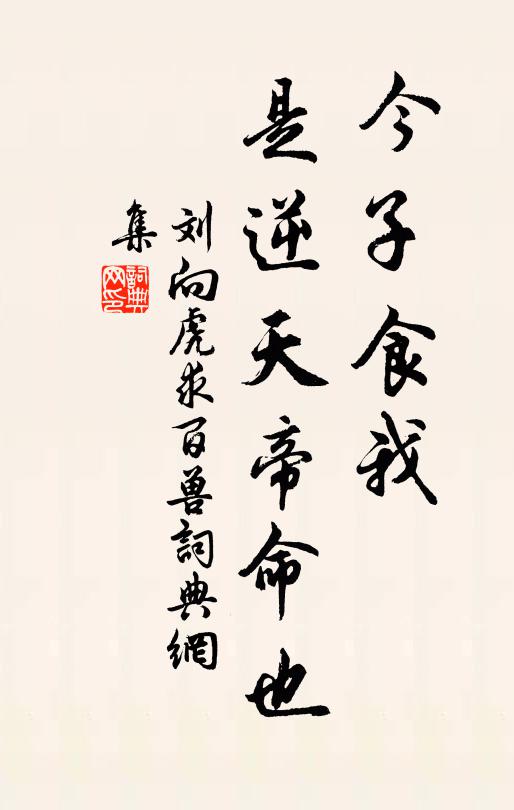 今子食我
是逆天帝命也
刘向虎求百兽詞典網
集
詞典
网印